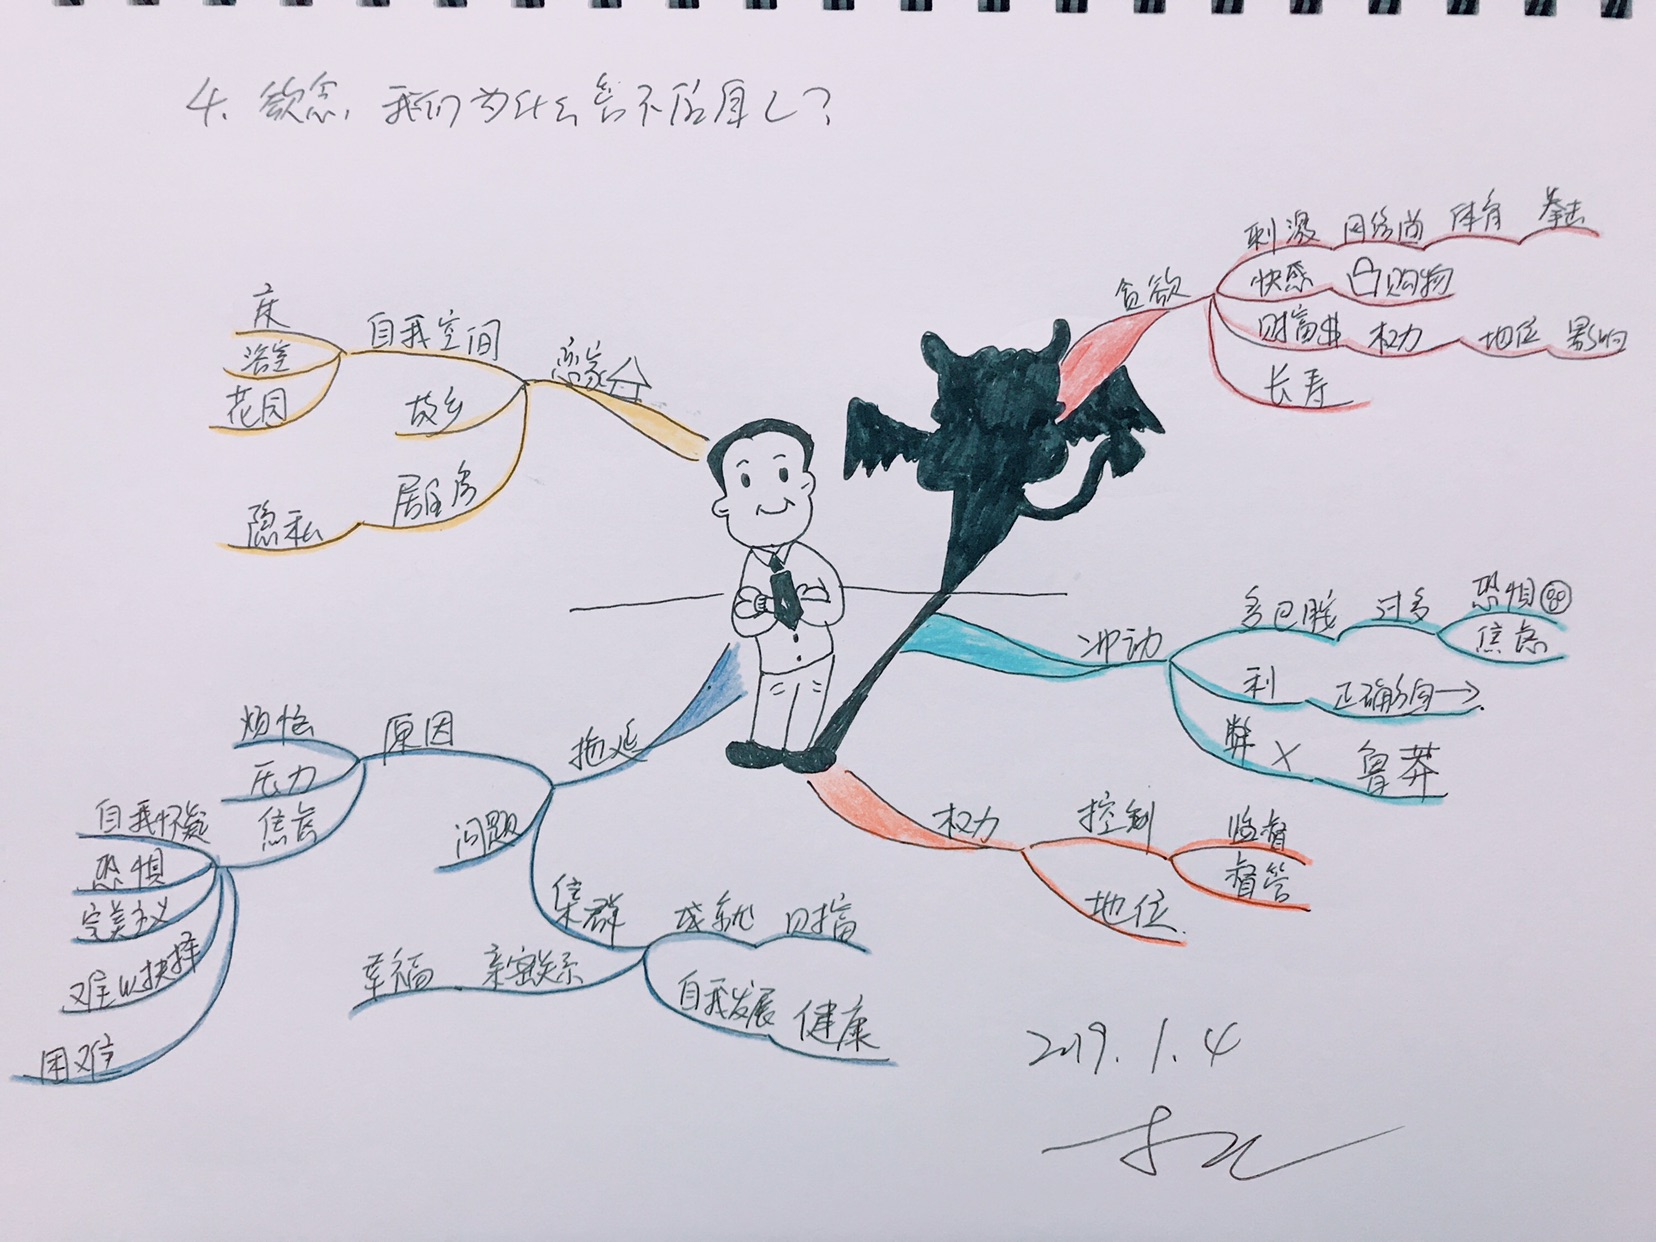 4. 欲念,我们为什么总不后悔?
贪欲
刺激 网络尚 体育 拳击
快感 购物
财富$ 权力 地位 影响
长寿
冲动
多巴胺 过多 恐惧
焦虑
利 正确方向→
弊 × 鲁莽
权力
控制 监督
督管
地位
恋家
自我空间
床
浴室
花园
故乡
居住房
隐私
拖延
原因
烦恼
压力
焦虑
自我怀疑
恐惧
完美主义
难以抉择
困难
问题
集群
成就 财富
自我发展 健康
亲密关系
幸福
2019.1.4